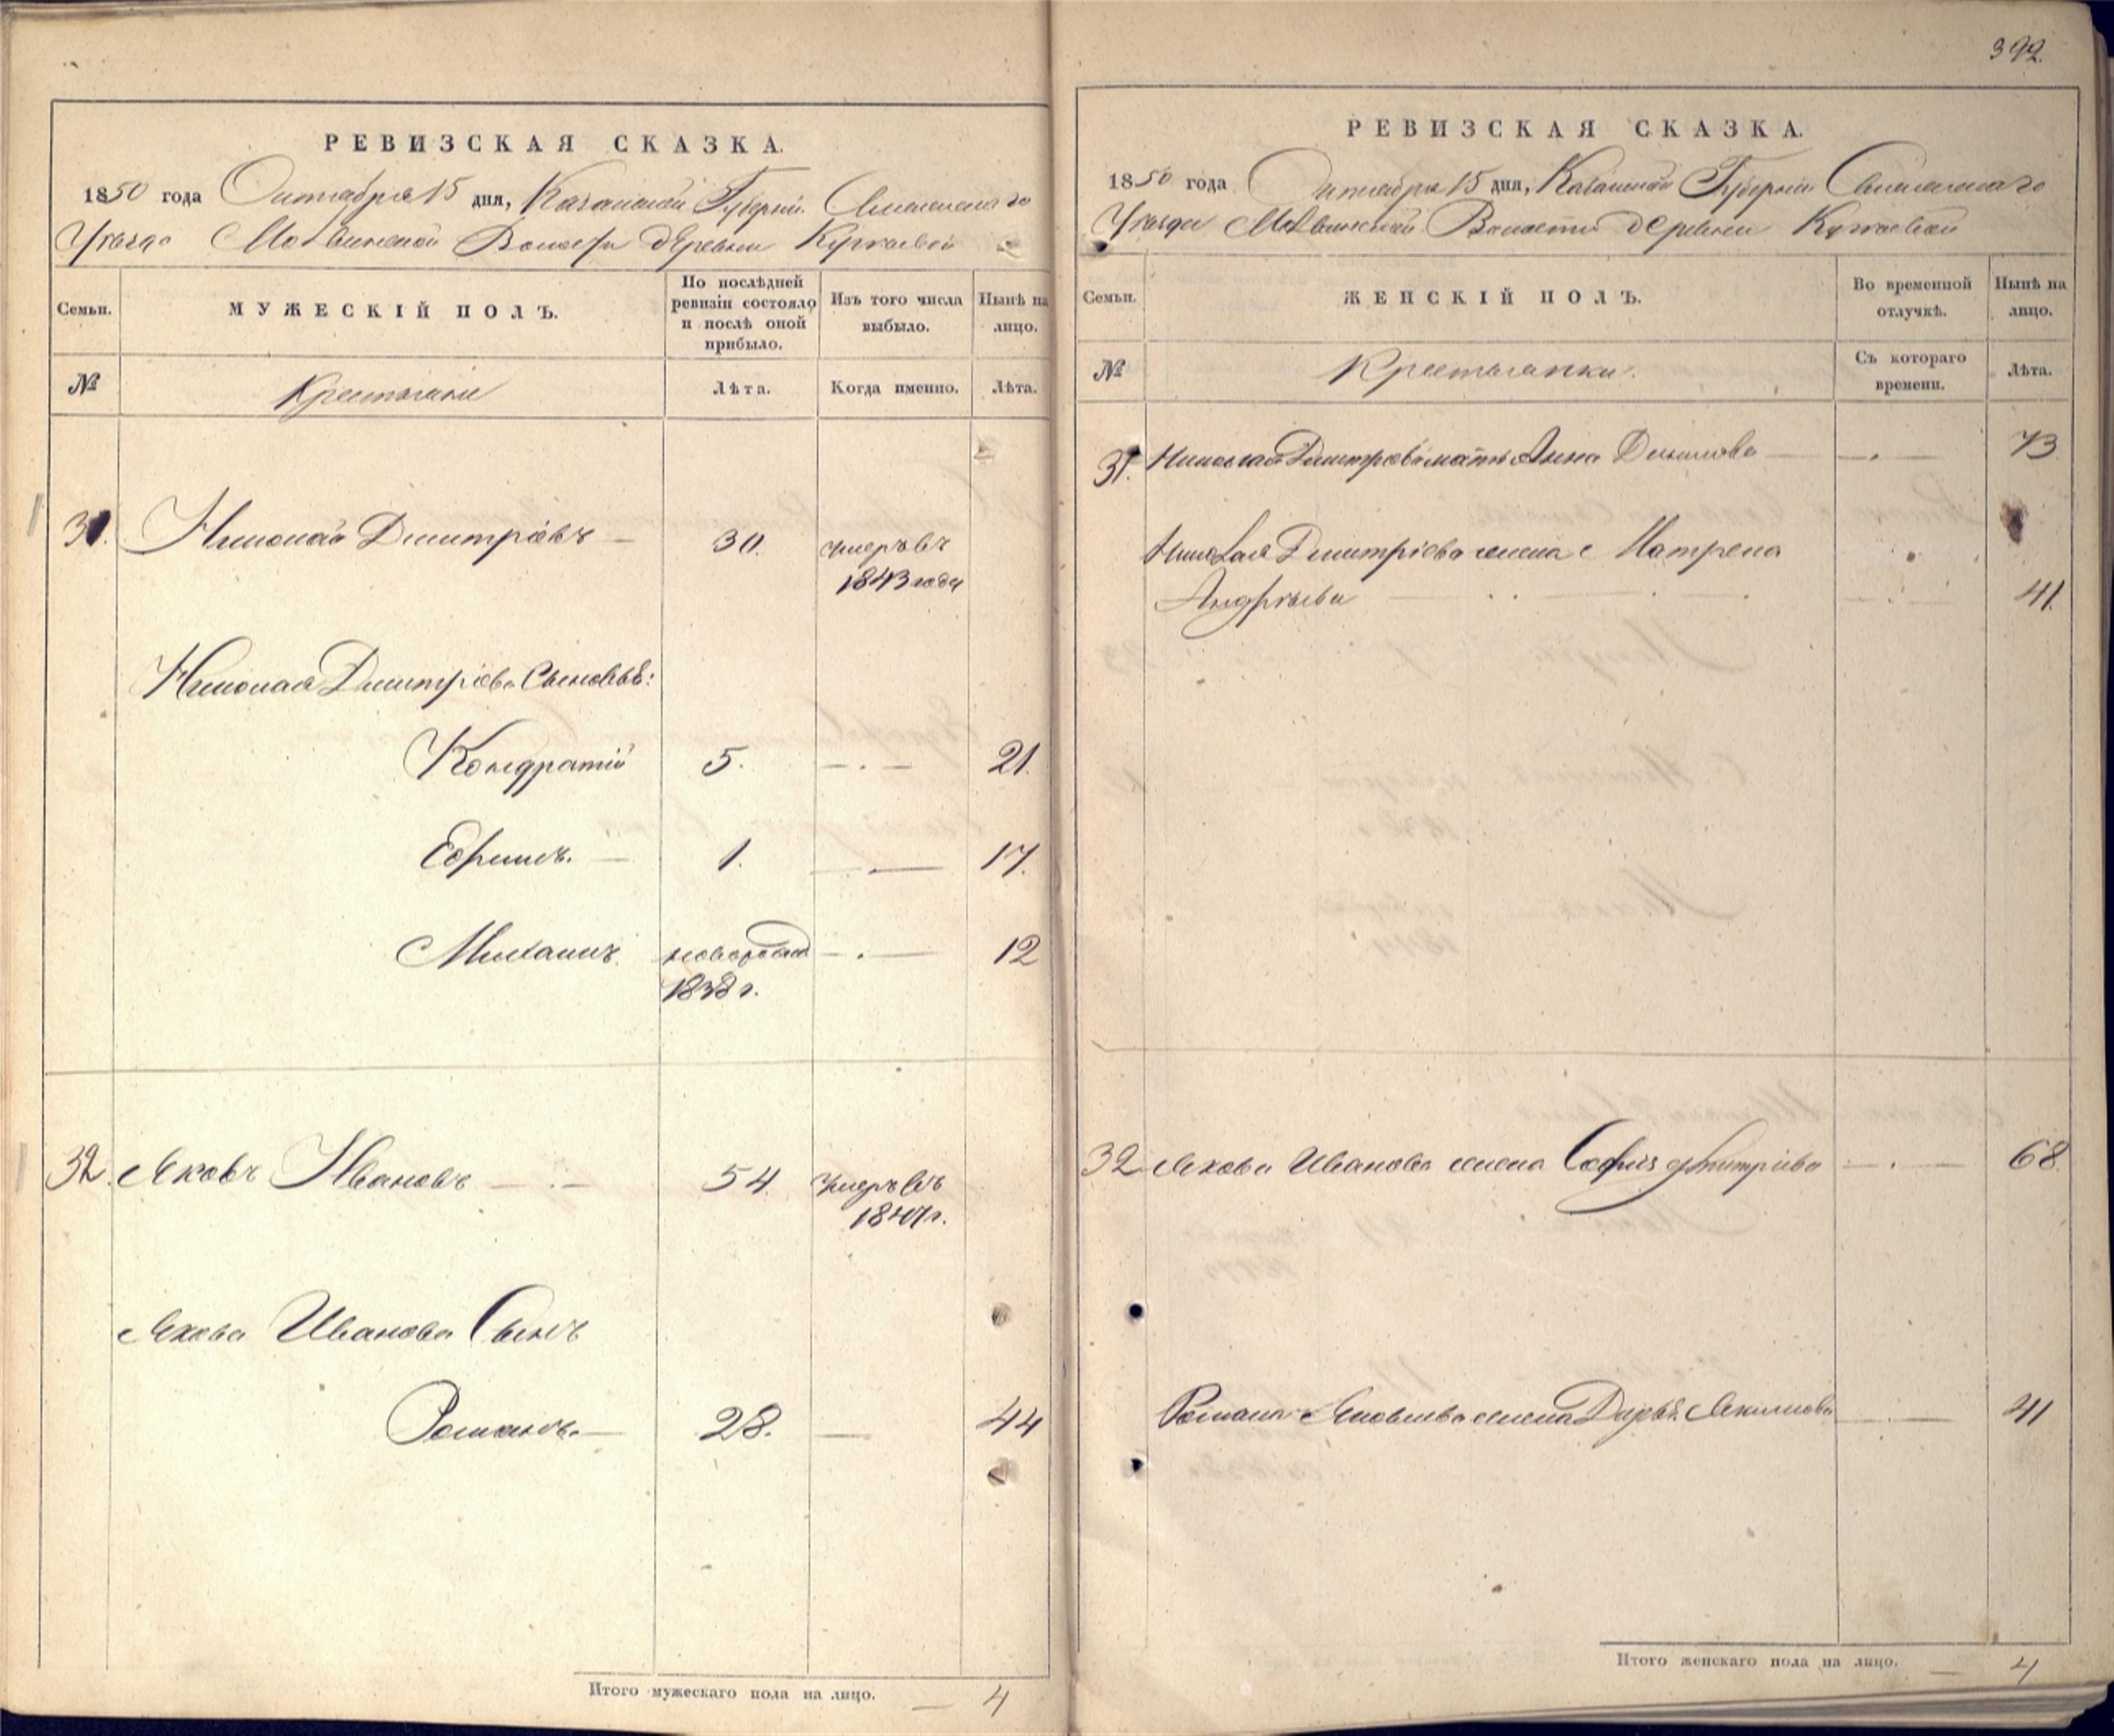 392.
РЕВИЗСКАЯ СКАЗКА.
1850 года Октября 15 дня, Казанской Губерніи
Уѣзда Волости деревни
Семьи.
МУЖЕСКІЙ ПОЛЪ.
По послѣдней ревизіи состояло и послѣ оной прибыло.
Изъ того числа выбыло.
Нынѣ на лицо.
№
Крестьяне
Лѣта.
Когда именно.
Лѣта.
31. Николай Дмитріевъ — 30. умеръ въ
1843 года
Николая Дмитріева Сыновья:
Кондратій 5. —.— 21.
Ефимъ. — 1. —.— 17.
новорожд —.— 12
1838 г.
32. Яковъ Ивановъ —.— 54. умеръ въ
Якова Иванова Сынъ
Романъ.— 28. — 44
Итого мужескаго пола на лицо. — 4
РЕВИЗСКАЯ СКАЗКА.
1850 года Октября 15 дня, Казанской Губерніи
Уѣзда Волости деревни
Семьи.
ЖЕНСКІЙ ПОЛЪ.
Во временной отлучкѣ.
Нынѣ на лицо.
№
Крестьянки.
Съ котораго времени.
Лѣта.
31. Николая Дмитріева мать Анна — —.— 73
Николая Дмитріева жена Матрена
Андрѣева — —.— 41.
32 Якова Иванова жена Софья Дмитріева —.— 68.
Романа Яковлева жена Дарья Акимова —.— 41
Итого женскаго пола на лицо. — 4